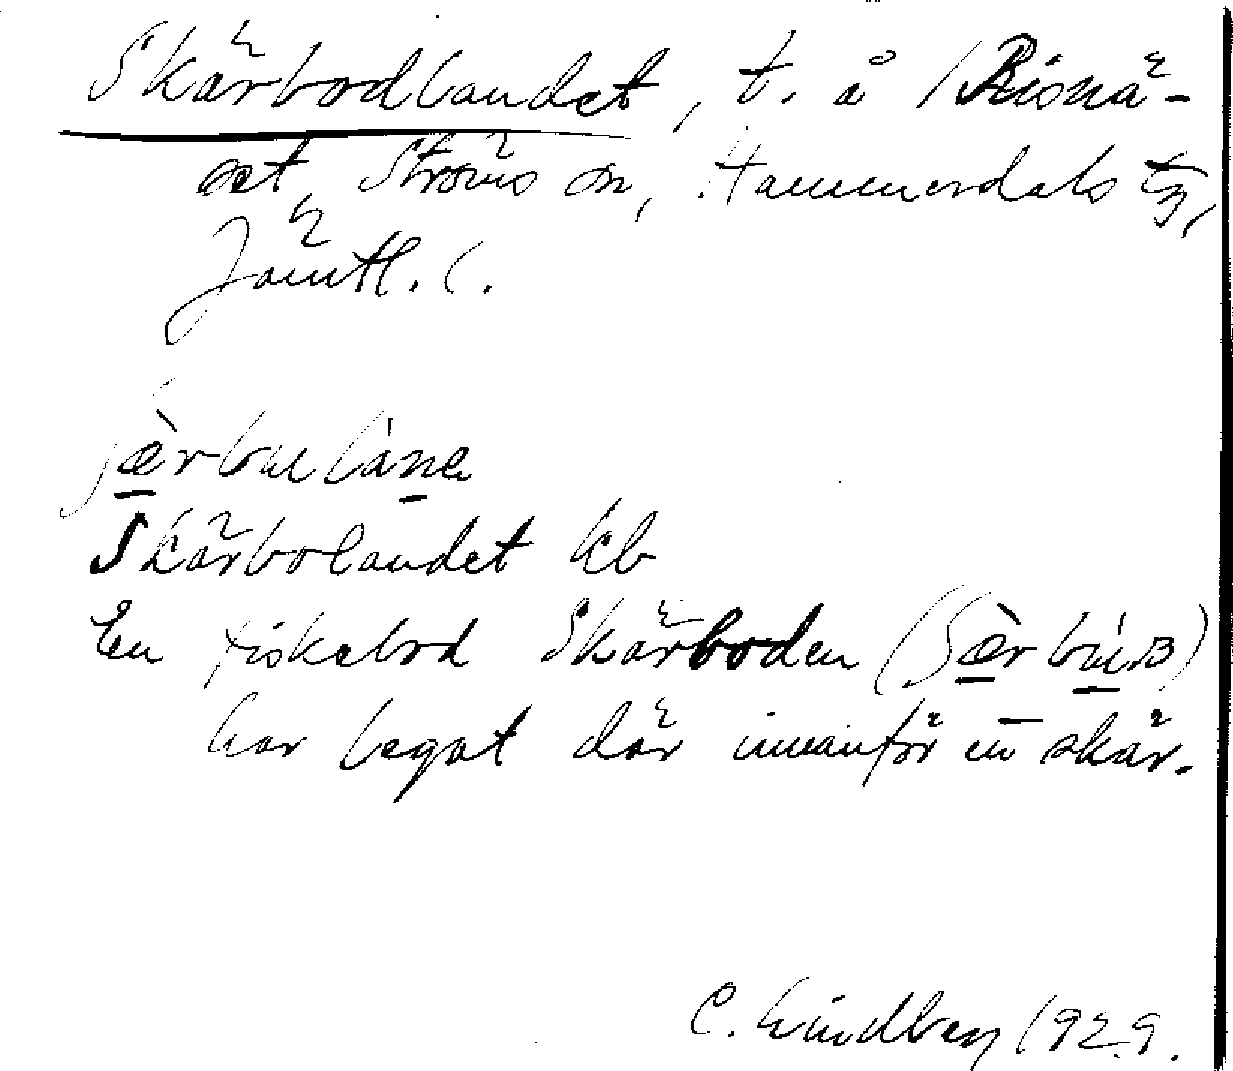 Skärbodlandet, t. å Risnä-
set, Ströms sn, Hammerdals tg,
Jämtl. l.
ʃæ̀rbu lánę
Skärbolandet kb
En fiskebod Skärboden (ʃæ̀rbúɴ)
har legat där innanför en skär.
C. Lindberg 1929.